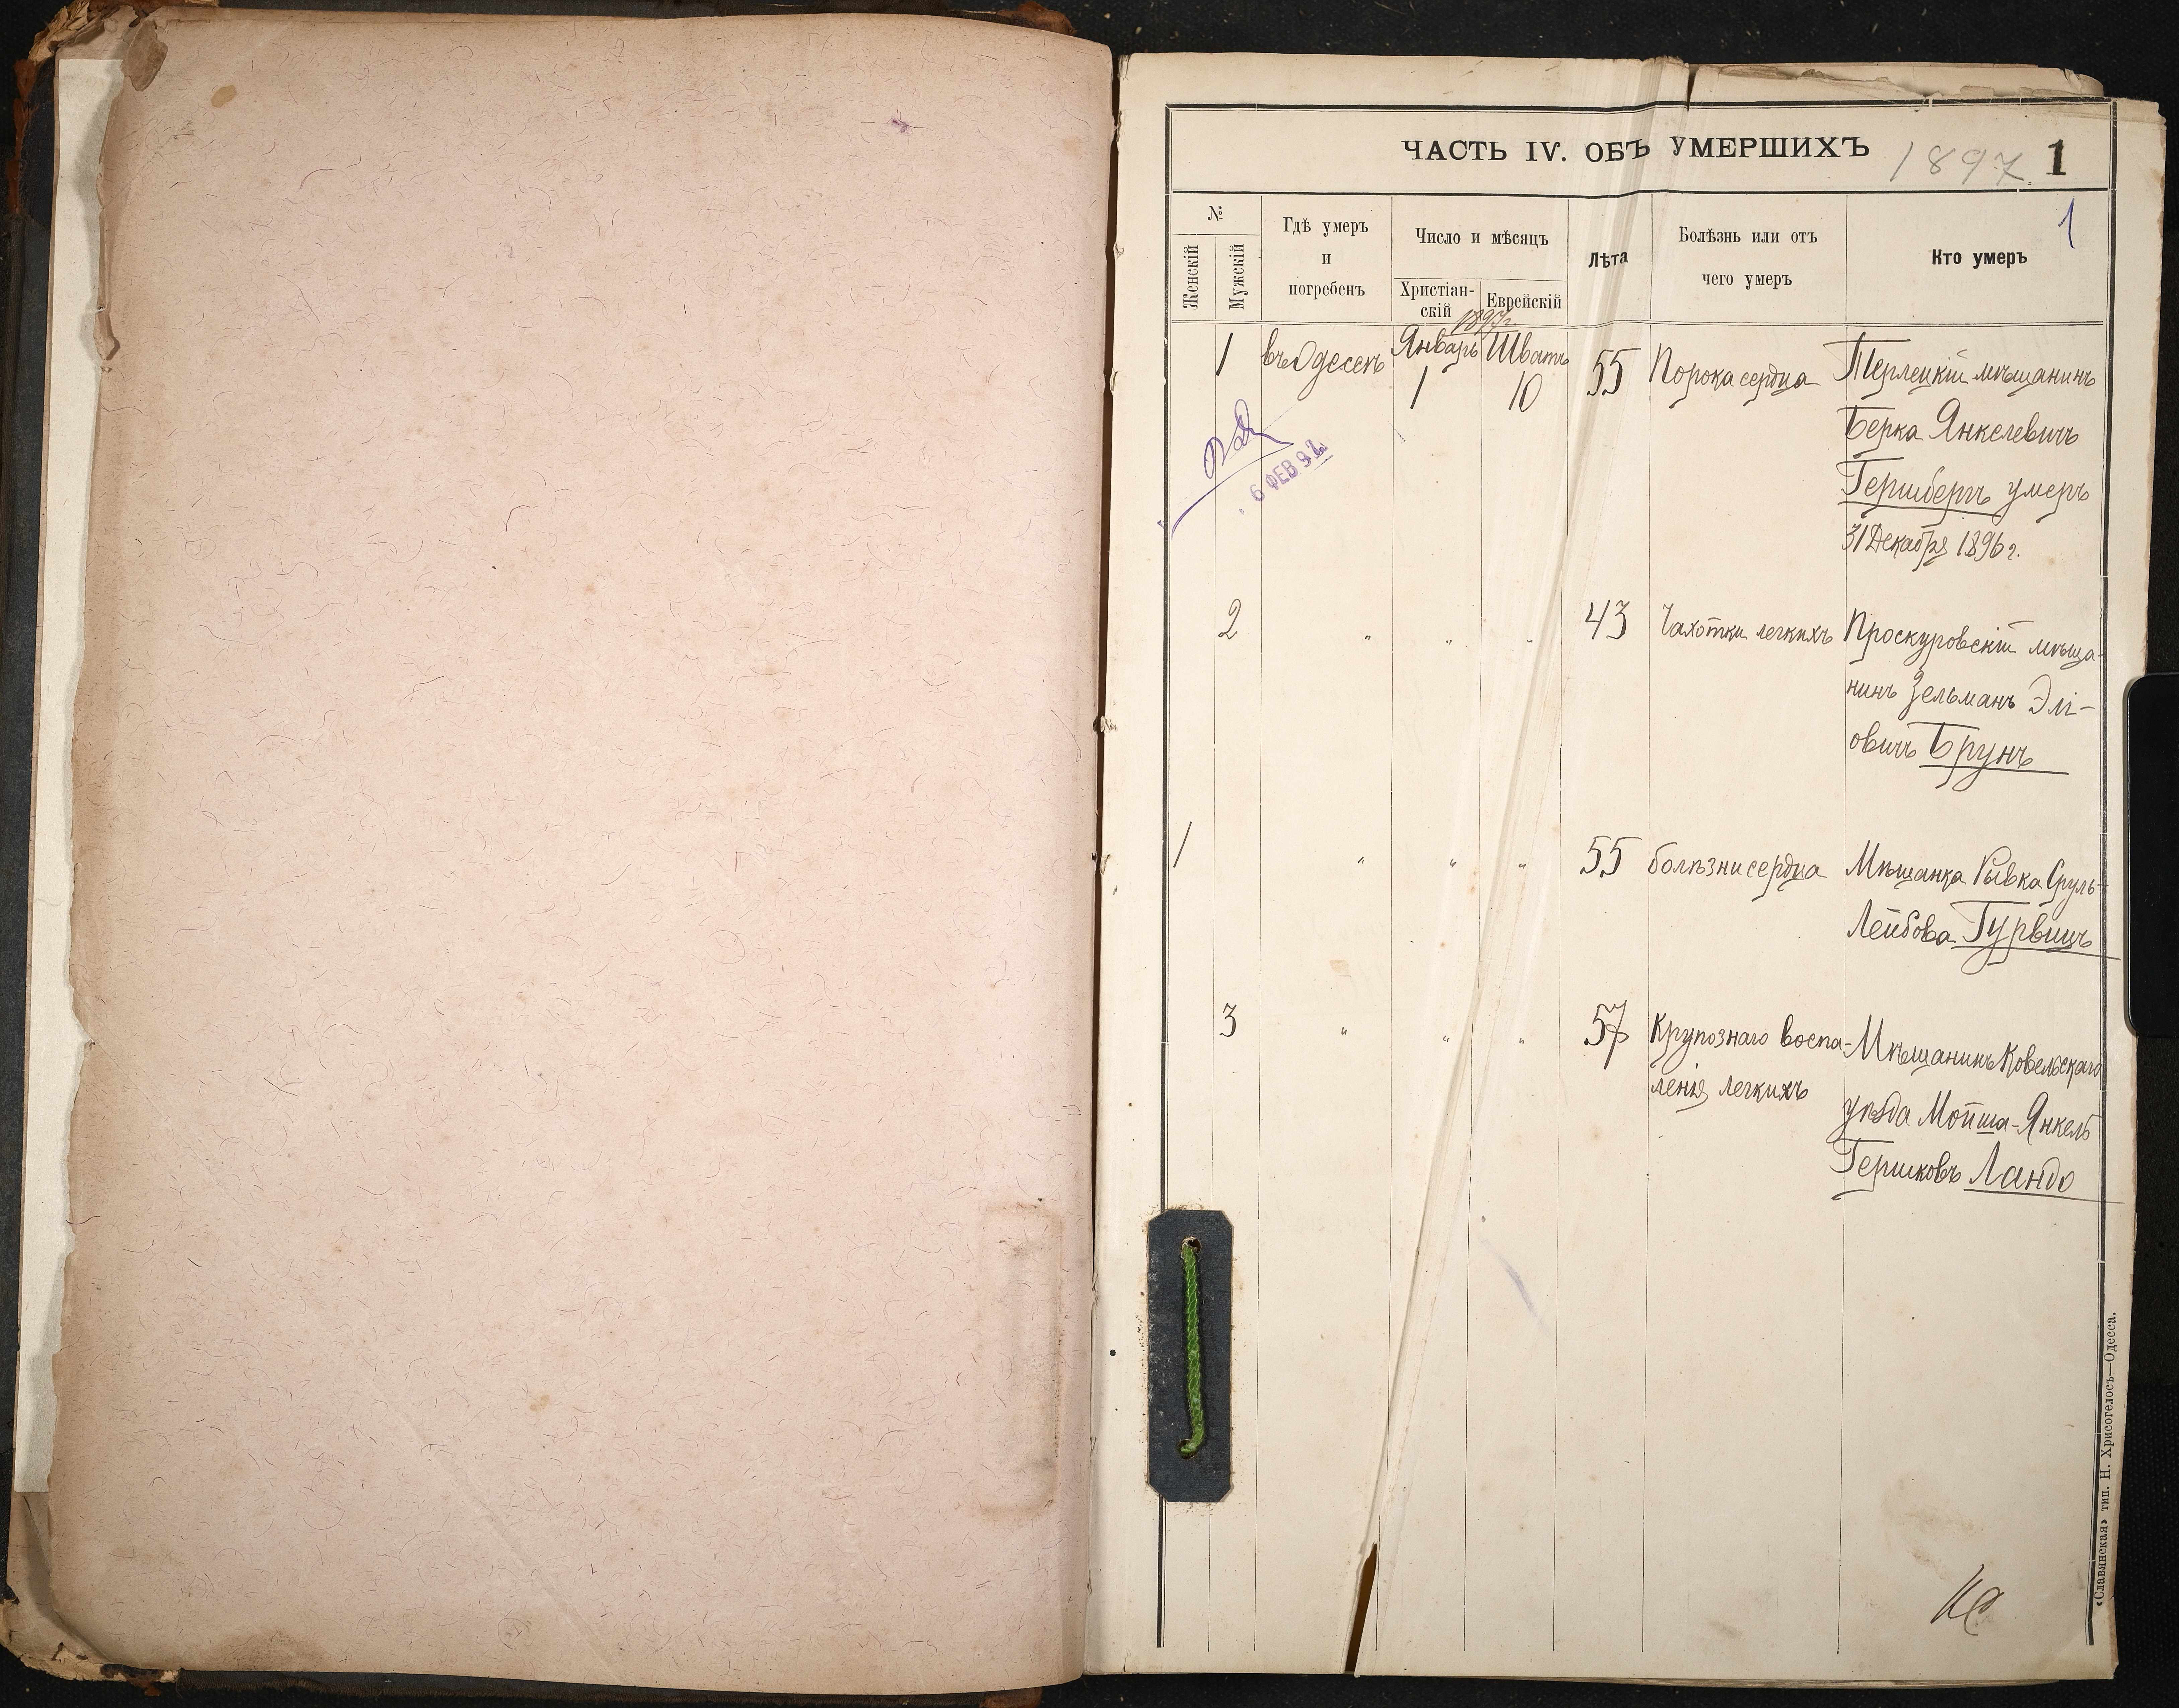 ЧАСТЬ IV. ОБЪ УМЕРШИХЪ 1897 1
1
№
Женскій
Мужскій
Гдѣ умеръ
и
погребенъ
Число и мѣсяцъ
Христіан-
скій
Еврейскій
Лѣта
Болѣзнь или отъ
чего умеръ
Кто умеръ
1897г.
1 въ Одессѣ Январь Шватъ 55 Порока сердца Терлецкій мѣщанинъ
1 10
Берка Янкелевичъ
Гершбергъ умеръ
31 Декабря 1896 г.
6 ФЕВ 92
2 " " " 43 Чахотки легкихъ Проскуровскій мѣща-
нинъ Зельманъ Элі-
овичъ Брунъ
1 " " " 55 болѣзни сердца Мѣщанка Рывка Сруль-
Лейбова Гурвицъ
3 " " " 57 Крупознаго воспа- Мѣщанинъ Ковельскаго
ленія легкихъ
уѣзда Мойша-Янкель
Гершковъ Ландо
«Славянская» тип. Н. Хрисогелосъ—Одесса.